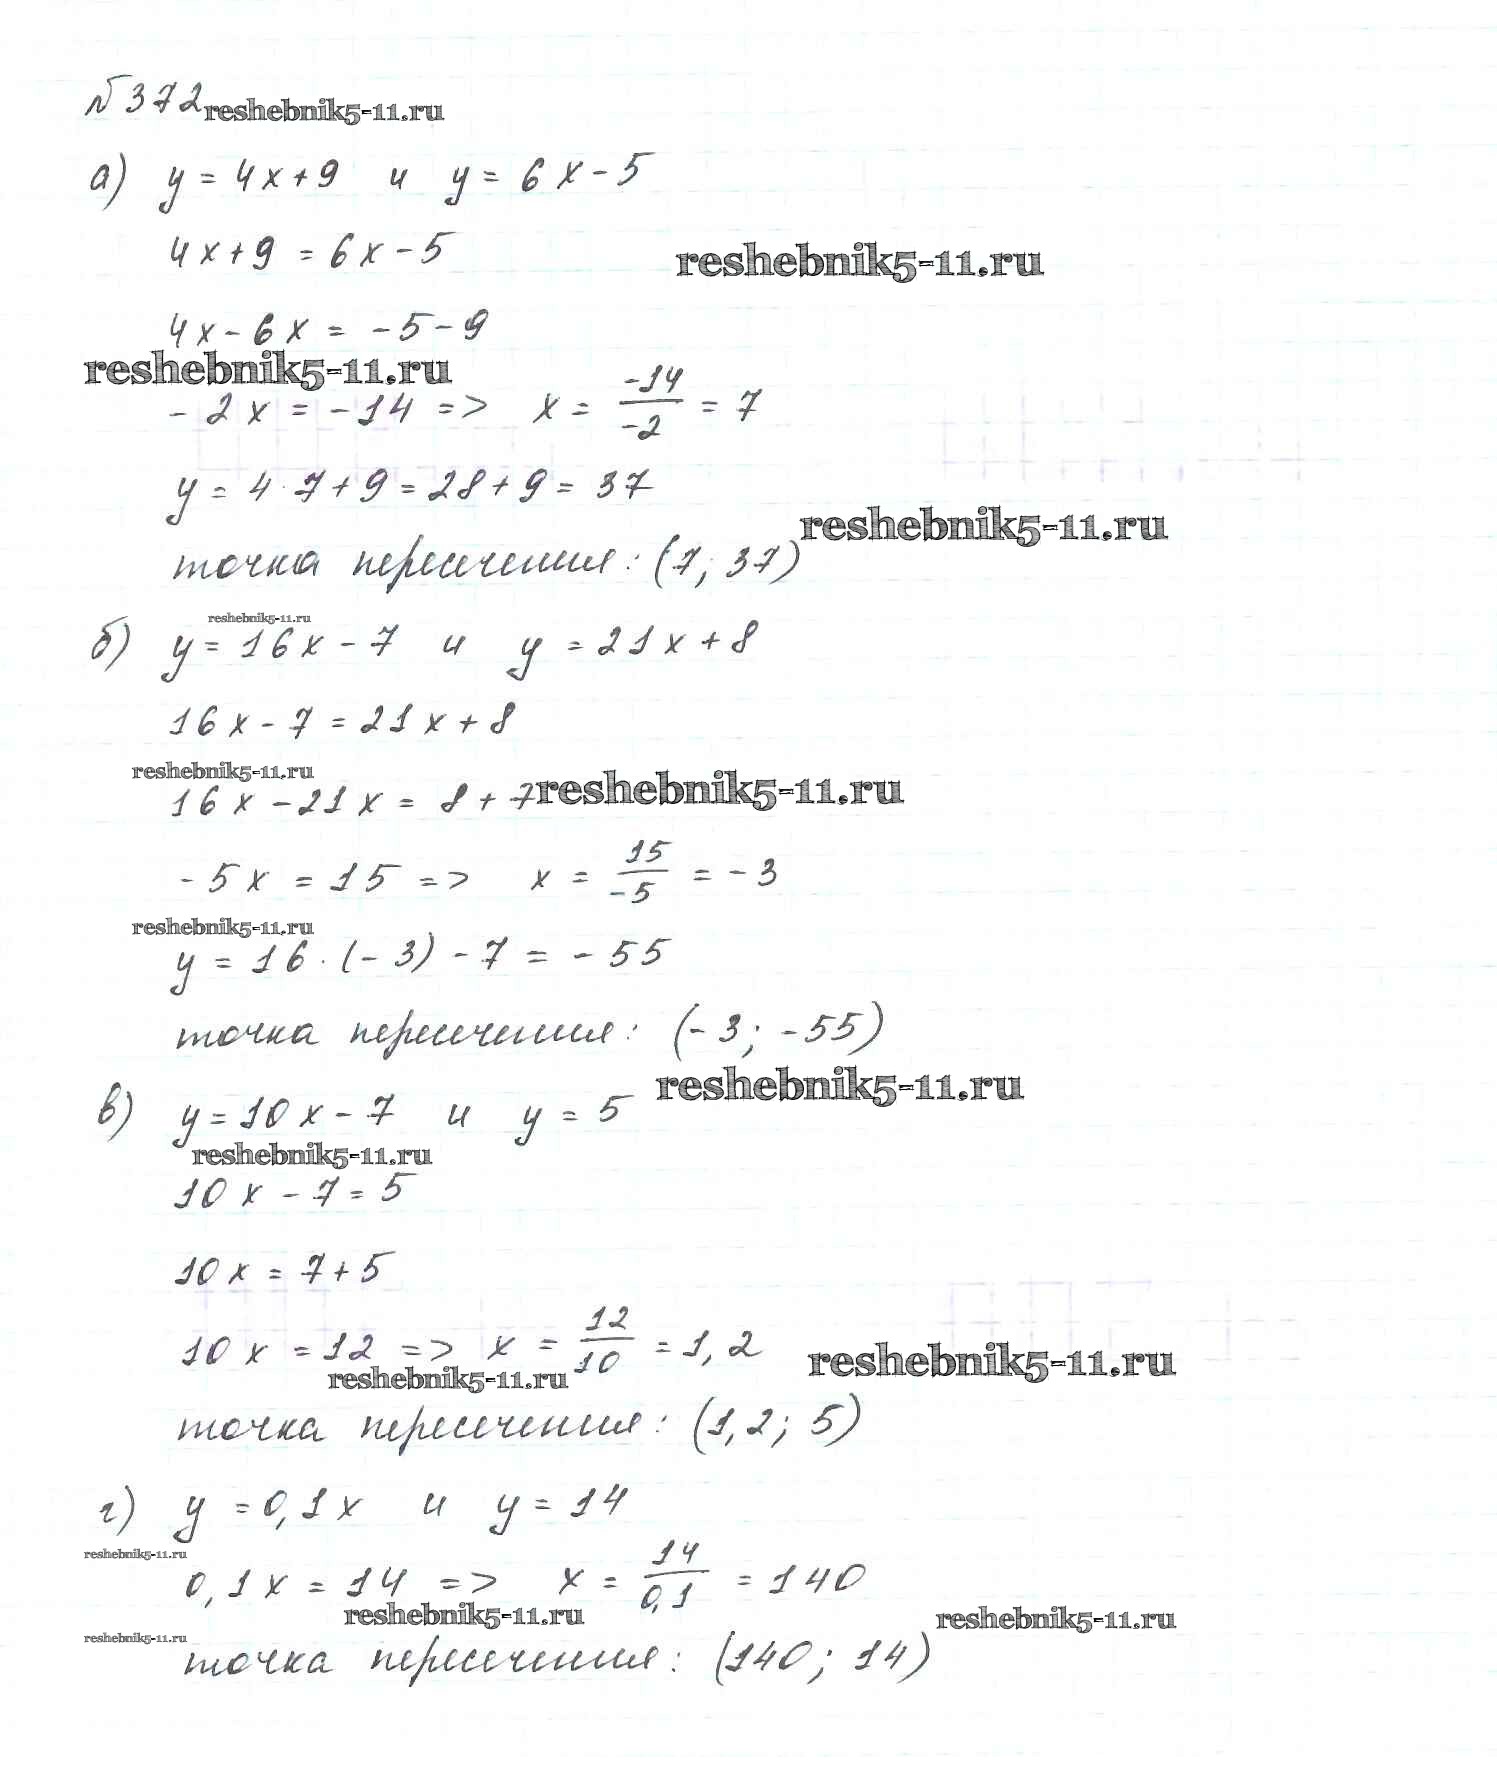 №372 reshebnik5-11.ru
а) y = 4x + 9 и y = 6x - 5
4x + 9 = 6x - 5
reshebnik5-11.ru
4x - 6x = -5 - 9
reshebnik5-11.ru
-2x = -14 => x = -14/-2 = 7
y = 4 · 7 + 9 = 28 + 9 = 37
reshebnik5-11.ru
точка пересечения: (7; 37)
reshebnik5-11.ru
б) y = 16x - 7 и y = 21x + 8
16x - 7 = 21x + 8
reshebnik5-11.ru
16x - 21x = 8 + 7 reshebnik5-11.ru
-5x = 15 => x = 15/-5 = -3
reshebnik5-11.ru
y = 16 · (-3) - 7 = -55
точка пересечения: (-3; -55)
reshebnik5-11.ru
в) y = 10x - 7 и y = 5
reshebnik5-11.ru
10x - 7 = 5
10x = 7 + 5
10x = 12 => x = 12/10 = 1,2
reshebnik5-11.ru
reshebnik5-11.ru
точка пересечения: (1,2; 5)
г) y = 0,1x и y = 14
reshebnik5-11.ru
0,1x = 14 => x = 14/0,1 = 140
reshebnik5-11.ru
reshebnik5-11.ru
reshebnik5-11.ru
точка пересечения: (140; 14)